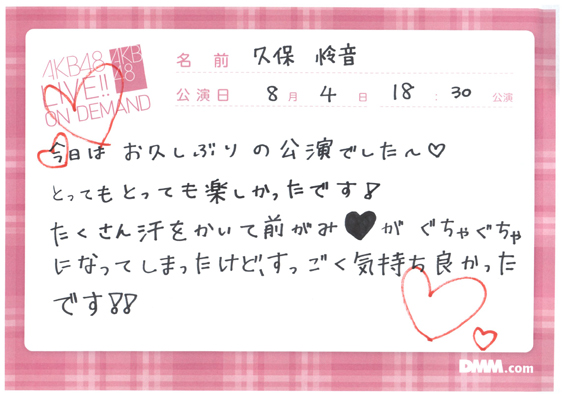 AKB48
LIVE!!
ON DEMAND
AKB
48
名前 久保 怜音
公演日 8月4日 18:30公演
今日は お久しぶりの公演でした〜♡
とってもとっても楽しかったです!
たくさん汗をかいて前がみ♥が ぐちゃぐちゃ
になってしまったけど、すっごく気持ち良かった
です!!
DMM.com